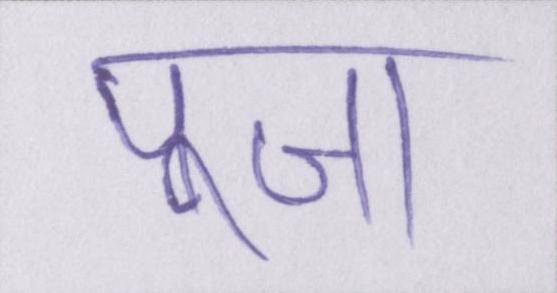 पूजा